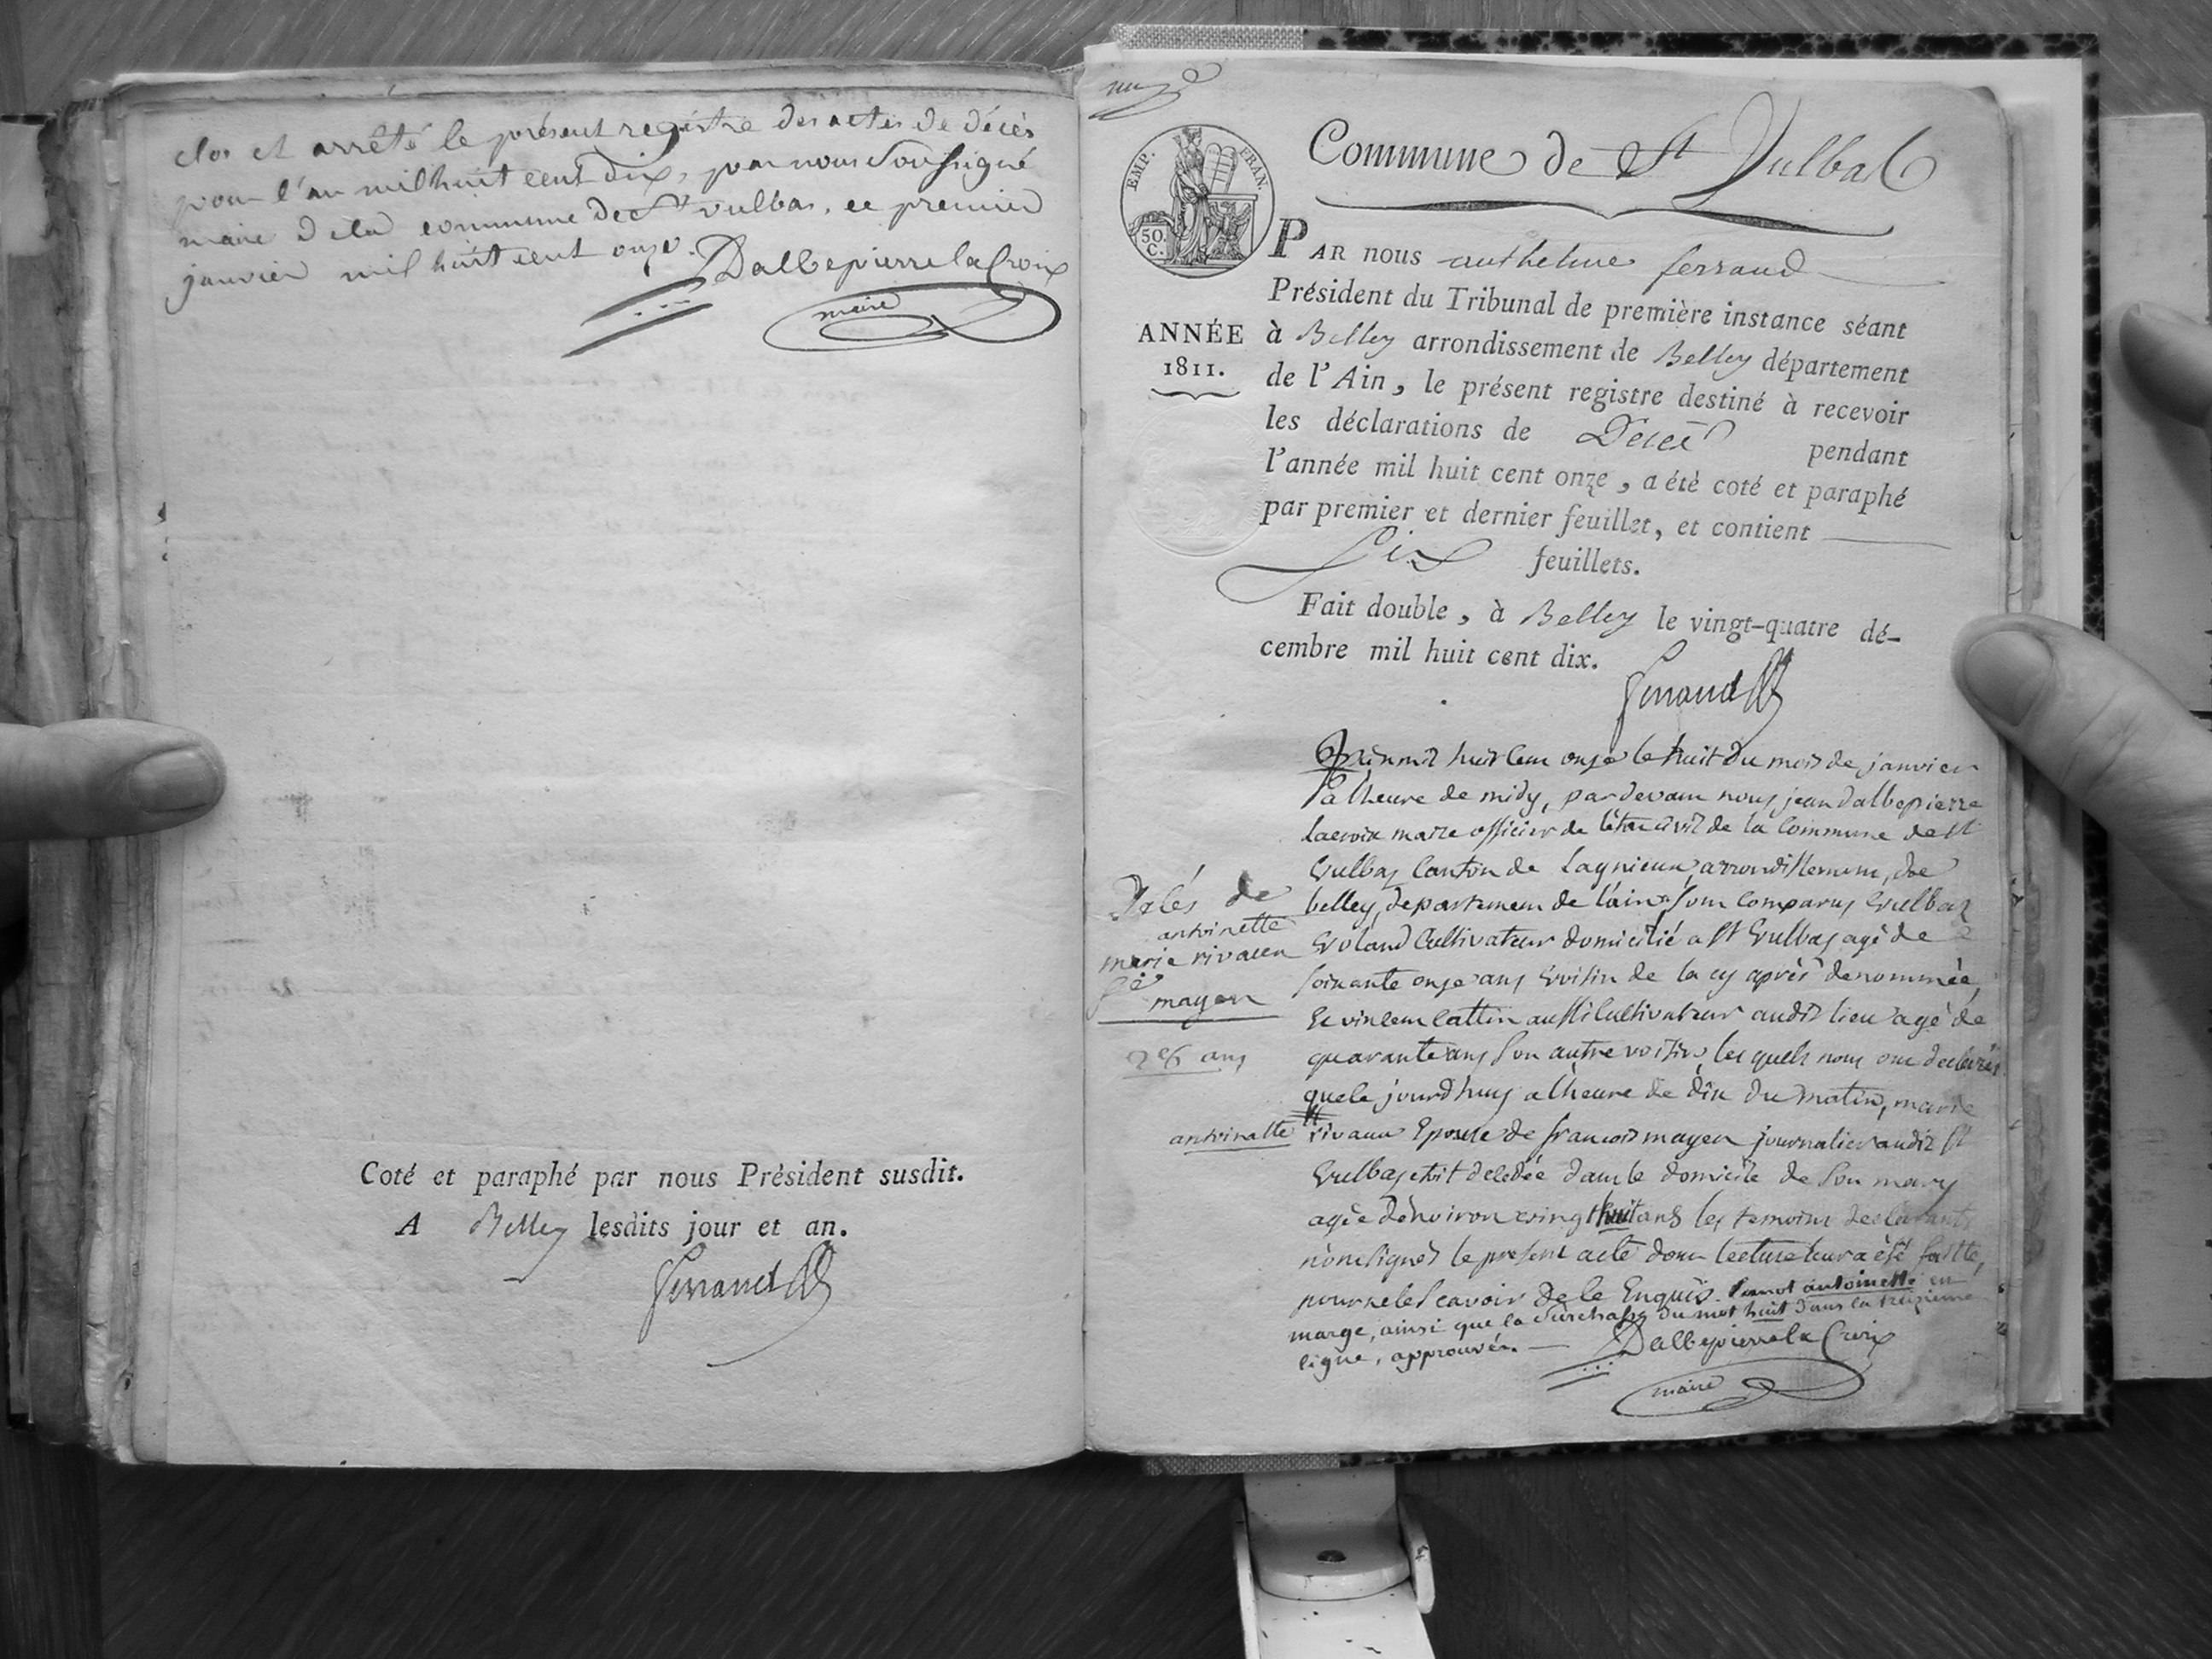 clos et arrêté le présent registre des actes de décès
pour l'an mil huit cent dix, par nous soussigné
maire de la commune de St vulbas, ce premier
janvier mil huit cent onze. Dalbepierre la Croix
maire
Coté et paraphé par nous Président susdit.
A Belley lesdits jour et an.
Ferrand
EMP. FRAN.
50.
C.
Commune de St Vulbas
PAR nous anthelme ferrand
Président du Tribunal de première instance séant
ANNÉE
1811.
à Belley arrondissement de Belley département
de l'Ain, le présent registre destiné à recevoir
les déclarations de Décès pendant
l'année mil huit cent onze, a été coté et paraphé
par premier et dernier feuillet, et contient
Six feuillets.
Fait double, à Belley le vingt-quatre dé-
cembre mil huit cent dix.
Ferrand
L'an mil huit cent onze le huit du mois de janvier
a lheure de midy, par devant nous jean dalbepierre
lacroix maire officier de l'état civil de la Commune de St
Vulbas Canton de Lagnieux, arrondissement de
belley, departement de l'ain, sont Comparus Vulbas
Voland Cultivateur domicilié a St Vulbas agé de
soixante onze ans Voisin de la cy après denommée,
Et vincent Cattin aussi Cultivateur audit lieu agé de
quarante ans son autre voisin, les quels nous ont declarés
que le jourdhuy a lheure de dix du matin, marie
rivaux Epouse de francois mayen journalier audit St
Vulbas est decedée dans le domicile de son mary
agée denviron vingt huit ans les temoins declarants
nont signés le present acte dont lecture leur a été faitte,
pour ne le scavoir de ce Enquis. Le mot antoinette en
marge, ainsi que la surcharge du mot huit dans la treizieme
ligne, approuvés. Dalbepierre la Croix
maire
Décés de
antoinette
marie rivaux
fe mayen
28 ans
antoinette